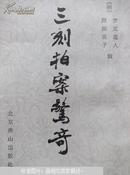 [明]
梦觉道人
西湖浪子
辑
三刻拍案驚奇
北京燕山出版社